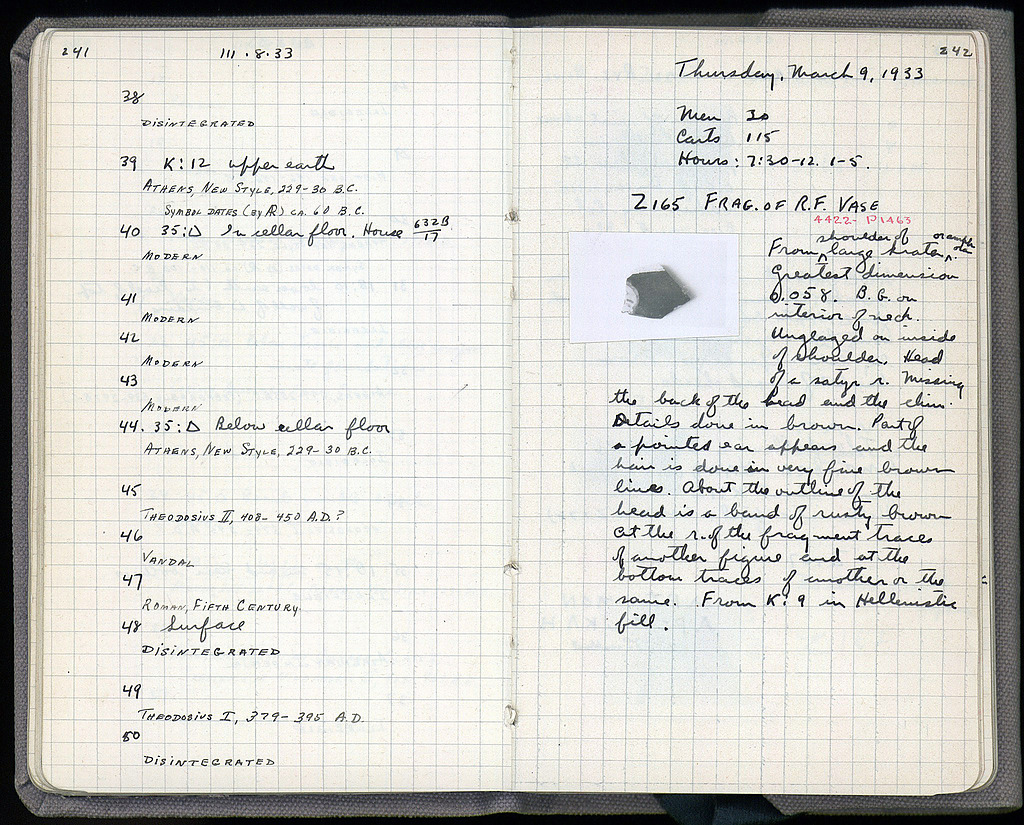 241
111.8.33
38
DISINTEGRATED
39 K:12 upper earth
ATHENS, NEW STYLE, 229-30 B.C.
SYMBOL DATES (BY Æ) CA. 60 B.C.
40 35:Δ In cellar floor. House 632B/17
MODERN
41
MODERN
42
MODERN
43
MODERN
44. 35:Δ Below cellar floor
ATHENS, NEW STYLE, 229-30 B.C.
45
THEODOSIUS II, 408-450 A.D.?
46
VANDAL
47
ROMAN, FIFTH CENTURY
48 Surface
DISINTEGRATED
49
THEODOSIUS I, 379-395 A.D.
50
DISINTEGRATED
242
Thursday, March 9, 1933
Men 30
Carts 115
Hours: 7:30-12. 1-5.
Z165 FRAG. OF R.F. VASE
4422- P1463
shoulder of or amph-
From ^ large krater ^. ora
Greatest dimension
0.058. B.G. on
interior of neck.
Unglazed on inside
of shoulder. Head
of a satyr r. Missing
the back of the head and the chin.
Details done in brown. Part of
a pointed ear appears and the
hair is done in very fine brown
lines. About the outline of the
head is a band of rusty brown
at the r. of the fragment traces
of another figure and at the
bottom traces of another or the
same. From K:9 in Hellenistic
fill.